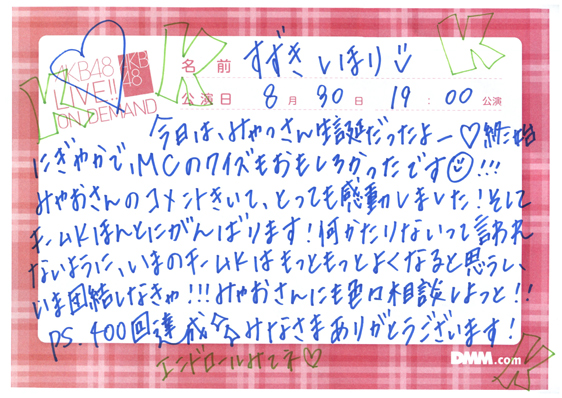 AKB48
LIVE!!
ON DEMAND
AKB
48
名前 すずき しほり
公演日 8月30日 19:00公演
今日は、みゃおさん生誕だったよー♡終始
にぎやかで、MCのクイズもおもしろかったです☺!!!
みゃおさんのコメントきいて、とっても感動しました!そして
チームKほんとにがんばります!何かたりないって言われ
ないように、いまのチームKはもっともっとよくなると思うし、
いま団結しなきゃ!!!みゃおさんにも 相談しよっと!!
PS.400回達成☆☆みなさまありがとうございます!
エンドロールみてネ♡
DMM.com
K
K
K
K